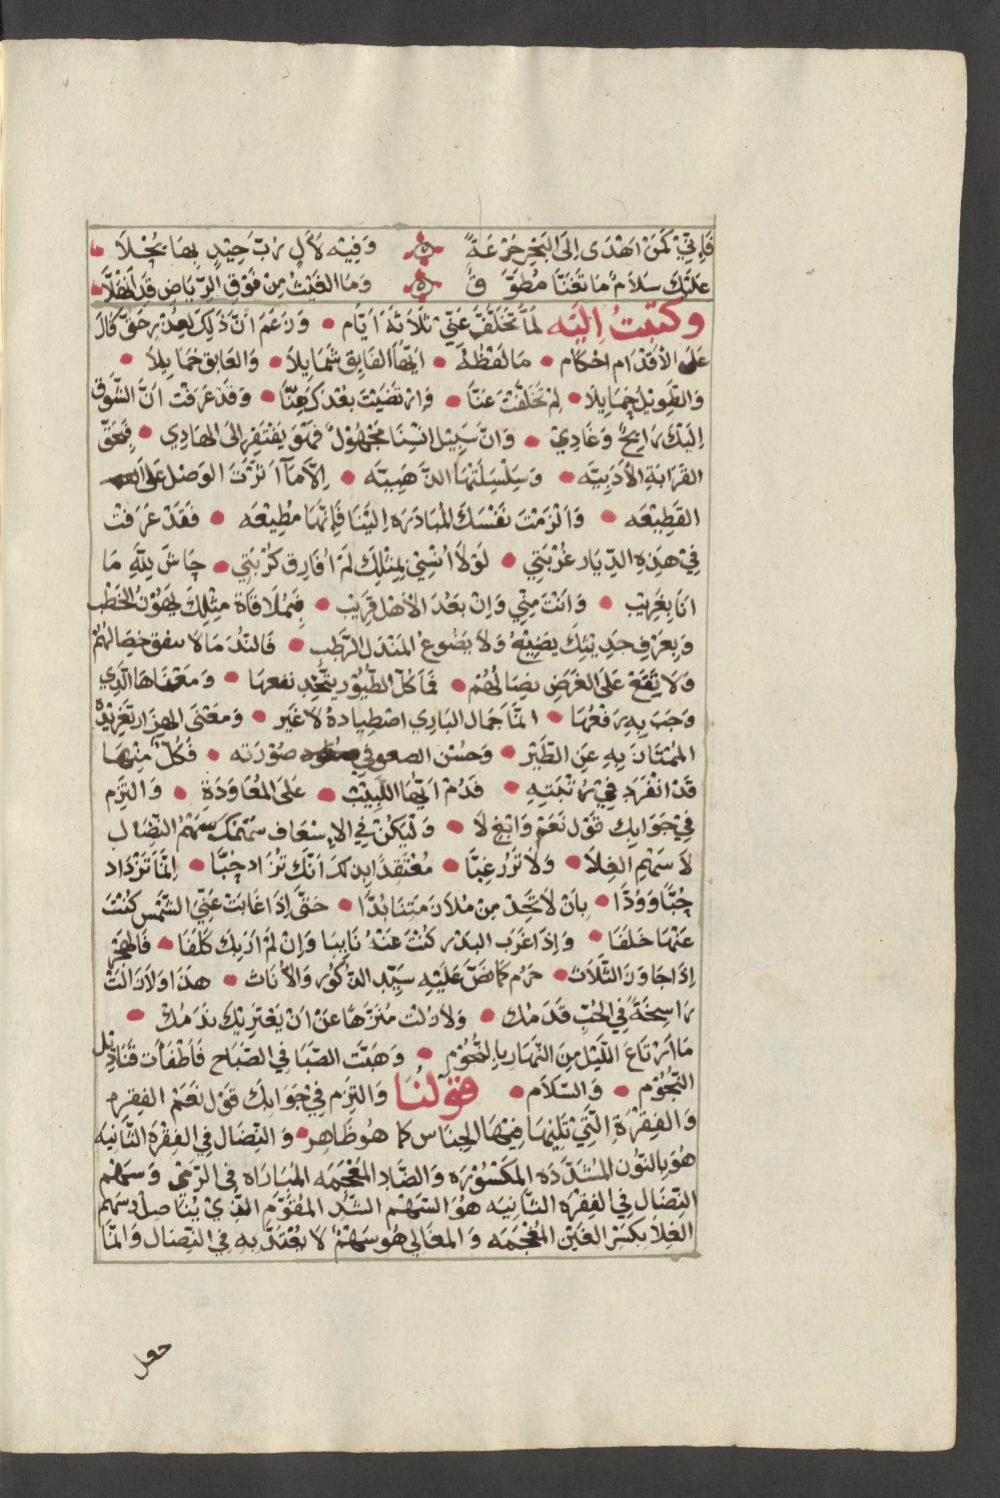 فَإِنِّيْ كَمَنْ اهْدَى اِلَى البَحْرِ جُرْعَةً ۞ وَفِيْهِ لَأٓلٍ رُبَّ جِيْدٍ بِهَا يُحْلَا
عَلَيْكَ سَلَامٌ مَا تَغَنَّا مُطَوَّقٌ ۞ وَمَا الغَيْثُ مِنْ فَوْقِ الرِّيَاضِ قَدِ انْهَلَّا
وكتبتُ اِليَه لَمَّا تَخَلَّفَ عَنِّيْ ثَلَاثَةَ اَيَّام • وَزَعَمَ اَنَّ ذَلِكَ لِعُذْرٍ حَتَّى كَانَ
عَلَى الأقْدَام احْكَام • مَا لَفْظُهُ • ايُّهَا الفَايِقُ شَمَايِلاً • وَالعَابِق خَمَايِلاً •
وَالطَّوِيْل حَمَايِلا • لِمْ تَخَلَّفْتَ عَنَّا • وَارْتَضَيْتَ بُعْدَكَ عِنَّا • وَقَدْ عَرَفْتَ اَنَّ الشَّوْق
اِلَيْكَ رَايِحٌ وَغَادِيْ • وَانَّ سَبِيْل انْسِنَا مَجْهُوْلٌ فَهْوَ يَفْتَقِر اِلَى الهَادِي • فَبِحَقِّ
القَرَابَةِ الأَدَبِيَّه • وَسِلْسِلَتِهَا الذَّهَبِيَّه • اِلَّا مَا آثَرْتَ الوَصْل عَلَى
القَطِيْعَه • وَالْزَمْتَ نَفْسَكَ المُبَادَرَه اِلَيْنَا فَإِنَّهَا مُطِيْعَه • فَقَدْ عَرَفْتَ
فِيْ هَذِهِ الدِّيَار غُرْبَتِي • لَوْلَا اُنْسِيْ بِمِثْلِكَ لَمْ اُفَارِق كُرْبَتِي • حَاشَ لِلّهِ مَا
انَا بِغَرِيْب • وَانْتَ مِنِّي وَاِنْ بَعُدَ الأَهْل قَرِيْب • فَبِمُلَاقَاة مِثْلِكَ يَهُوْنُ الخَطْب
وَبِعَرْفِ حَدِيْثِكَ يَضِيْعُ وَلَا يَضُوعُ المَنْدَل الرَّطِب • فَالنُّدَمَا لَا تتفق خِصَالُهُمْ
وَلَا تَقَعُ عَلَى الغَرَضِ نِصَالُهُمْ • فَمَا كُلّ الطُّيُوْر يتَّحِد نفعها • وَمَعْنَاهَا الَّذِي
وَجَبَ بِهِ رَفْعُهَا • انَّمَا جَمَال البَازِي اصْطِيَادهُ لَا غَيْر • وَمَعْنَى الهِزَار تَغْرِيْدُهُ
المُمْتَازُ بِهِ عَنِ الطَّيْر • وَحُسْن الصعو في صُوْرَته • فَكُلٌّ مِنْهَا
قَدْ انْفَرَدَ فِيْ رُتْبَتِهِ • فَدُمْ اَيُّهَا اللَّبِيْبُ • عَلَى المُعَاوَدَة • وَالتَزِم
فِيْ جَوَابِك قَوْل نَعَمْ وَابْغِ لَا • وَلْيَكُنْ فِي الإِسْعَاف سَهْمُكَ سَهْمُ النِّضَال
لَا سَهْم الغِلَا • وَلَا تَزُرْ غِبًّا • مُعْتَقِدًا بِذلكَ اَنَّكَ تُزَاد حُبًّا • اِنَّمَا تَزْدَاد
حُبًّا وَوُدًّا • بِاَنْ لَا تَجِدْ مِنْ مُلَازَمَتِنَا بُدًّا • حَتَّى اِذَا غَابَتْ عَنِّي الشَّمْس كُنْتَ
عَنْهَا خَلَفَا • وَاِذَا غَرَبَ البَدْر كُنْتَ عَنْهُ نَايِبَا وَاِنْ لَمْ ارَ بِكَ كَلَفَا • فَالهَجْرُ
اِذَا جَاوَزَ الثَّلَاث • حَرُم كَمَا نَصَّ عَلَيْهِ سَيِّد الذُّكُوْر وَالأُنَاث • هَذَا وَلَا زَالَتْ
رَاسِخَةً فِي الحُبِّ قَدَمُك • وَلَا زِلْت مُنَزَّهًا عَنْ اَنْ يَعْتَرِيْكَ نَدَمُكْ •
مَا ارْتَاعَ اللَّيْل مِنَ النَّهَار بِالهُجُوْم • وَهَبَّتْ الصَّبَا فِي الصَّبَاحِ فَاَطْفَأَتْ قَنَادِيْل
النُّجُوْم • وَالسَّلَام • قَوْلُنَا وَالتَزِم فِيْ جَوَابِكَ قَوْل نَعَمْ الفِقره
وَالفِقْرَة الَّتِيْ تَلِيْهَا فِيْهَا الجِنَاس كما هُو ظَاهِر • وَالنِّضَال فِي الفِقْرَة الثَّانِيَه
هُوَ بِالنُّون المُشَدَّدَه المَكْسُوْرَه وَالضَّادِ المُعْجَمَه المُبَارَاه فى الرَّمْى وَسَهْم
النِّضَال فِي الفِقْرَه الثَّانِيَه هُوَ السَّهْم السَّدّ المُقَوَّم الَّذِيْ يُنَاضل به وسَهم
الغِلَا بِكَسْر الغَيْن المُعْجَمَه وَالمغَالي هُو سَهْمٌ لَا يُعْتَدّ بِهِ فِي النِّضَال وَانَّمَا